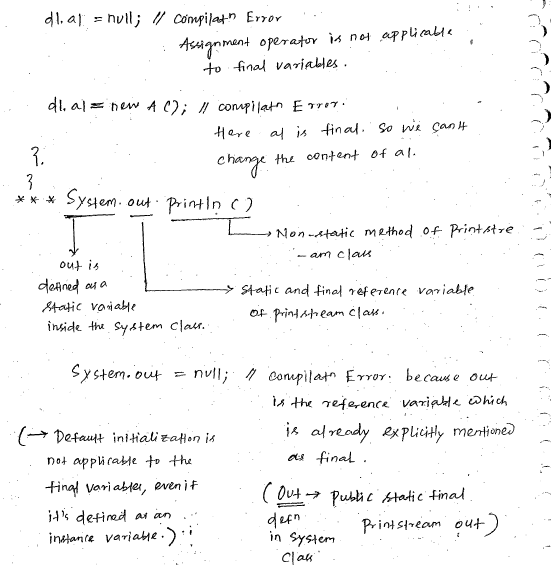 d1.a1 = null; // Compilatn Error
Assignment operator is not applicable
to final variables.
d1.a1 = new A(); // compilatn Error.
Here a1 is final. So we can't
change the content of a1.
}.
}
*** System.out.println()
→ Non-static method of Printstre
-am class
out is
defined as a
static variable
inside the System Class.
→ static and final reference variable
of printstream class.
System.out = null; // compilatn Error. because out
is the reference variable which
is already explicitly mentioned
as final.
(→ Default initialization is
not applicable to the
final variables, even if
it's defined as an
instance variable.)
(Out → Public static final
defn
in System
Class
Printstream out)